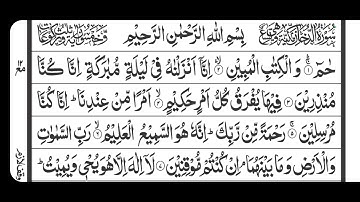 بِسْمِ اللهِ الرَّحْمٰنِ الرَّحِيْمِ
حٰمٓ ۚ وَالْكِتٰبِ الْمُبِيْنِ ۙ اِنَّاۤ اَنْزَلْنٰهُ فِيْ لَيْلَةٍ مُّبٰرَكَةٍ اِنَّا كُنَّا
مُنْذِرِيْنَ ۳ فِيْهَا يُفْرَقُ كُلُّ اَمْرٍ حَكِيْمٍ ۙ اَمْرًا مِّنْ عِنْدِنَا ؕ اِنَّا كُنَّا
مُرْسِلِيْنَ ۚ رَحْمَةً مِّنْ رَّبِّكَ ؕ اِنَّهٗ هُوَ السَّمِيْعُ الْعَلِيْمُ ۙ رَبِّ السَّمٰوٰتِ
وَالْاَرْضِ وَمَا بَيْنَهُمَا ۘ اِنْ كُنْتُمْ مُّوْقِنِيْنَ ۷ لَاۤ اِلٰهَ اِلَّا هُوَ يُحْيٖ وَيُمِيْتُ ؕ